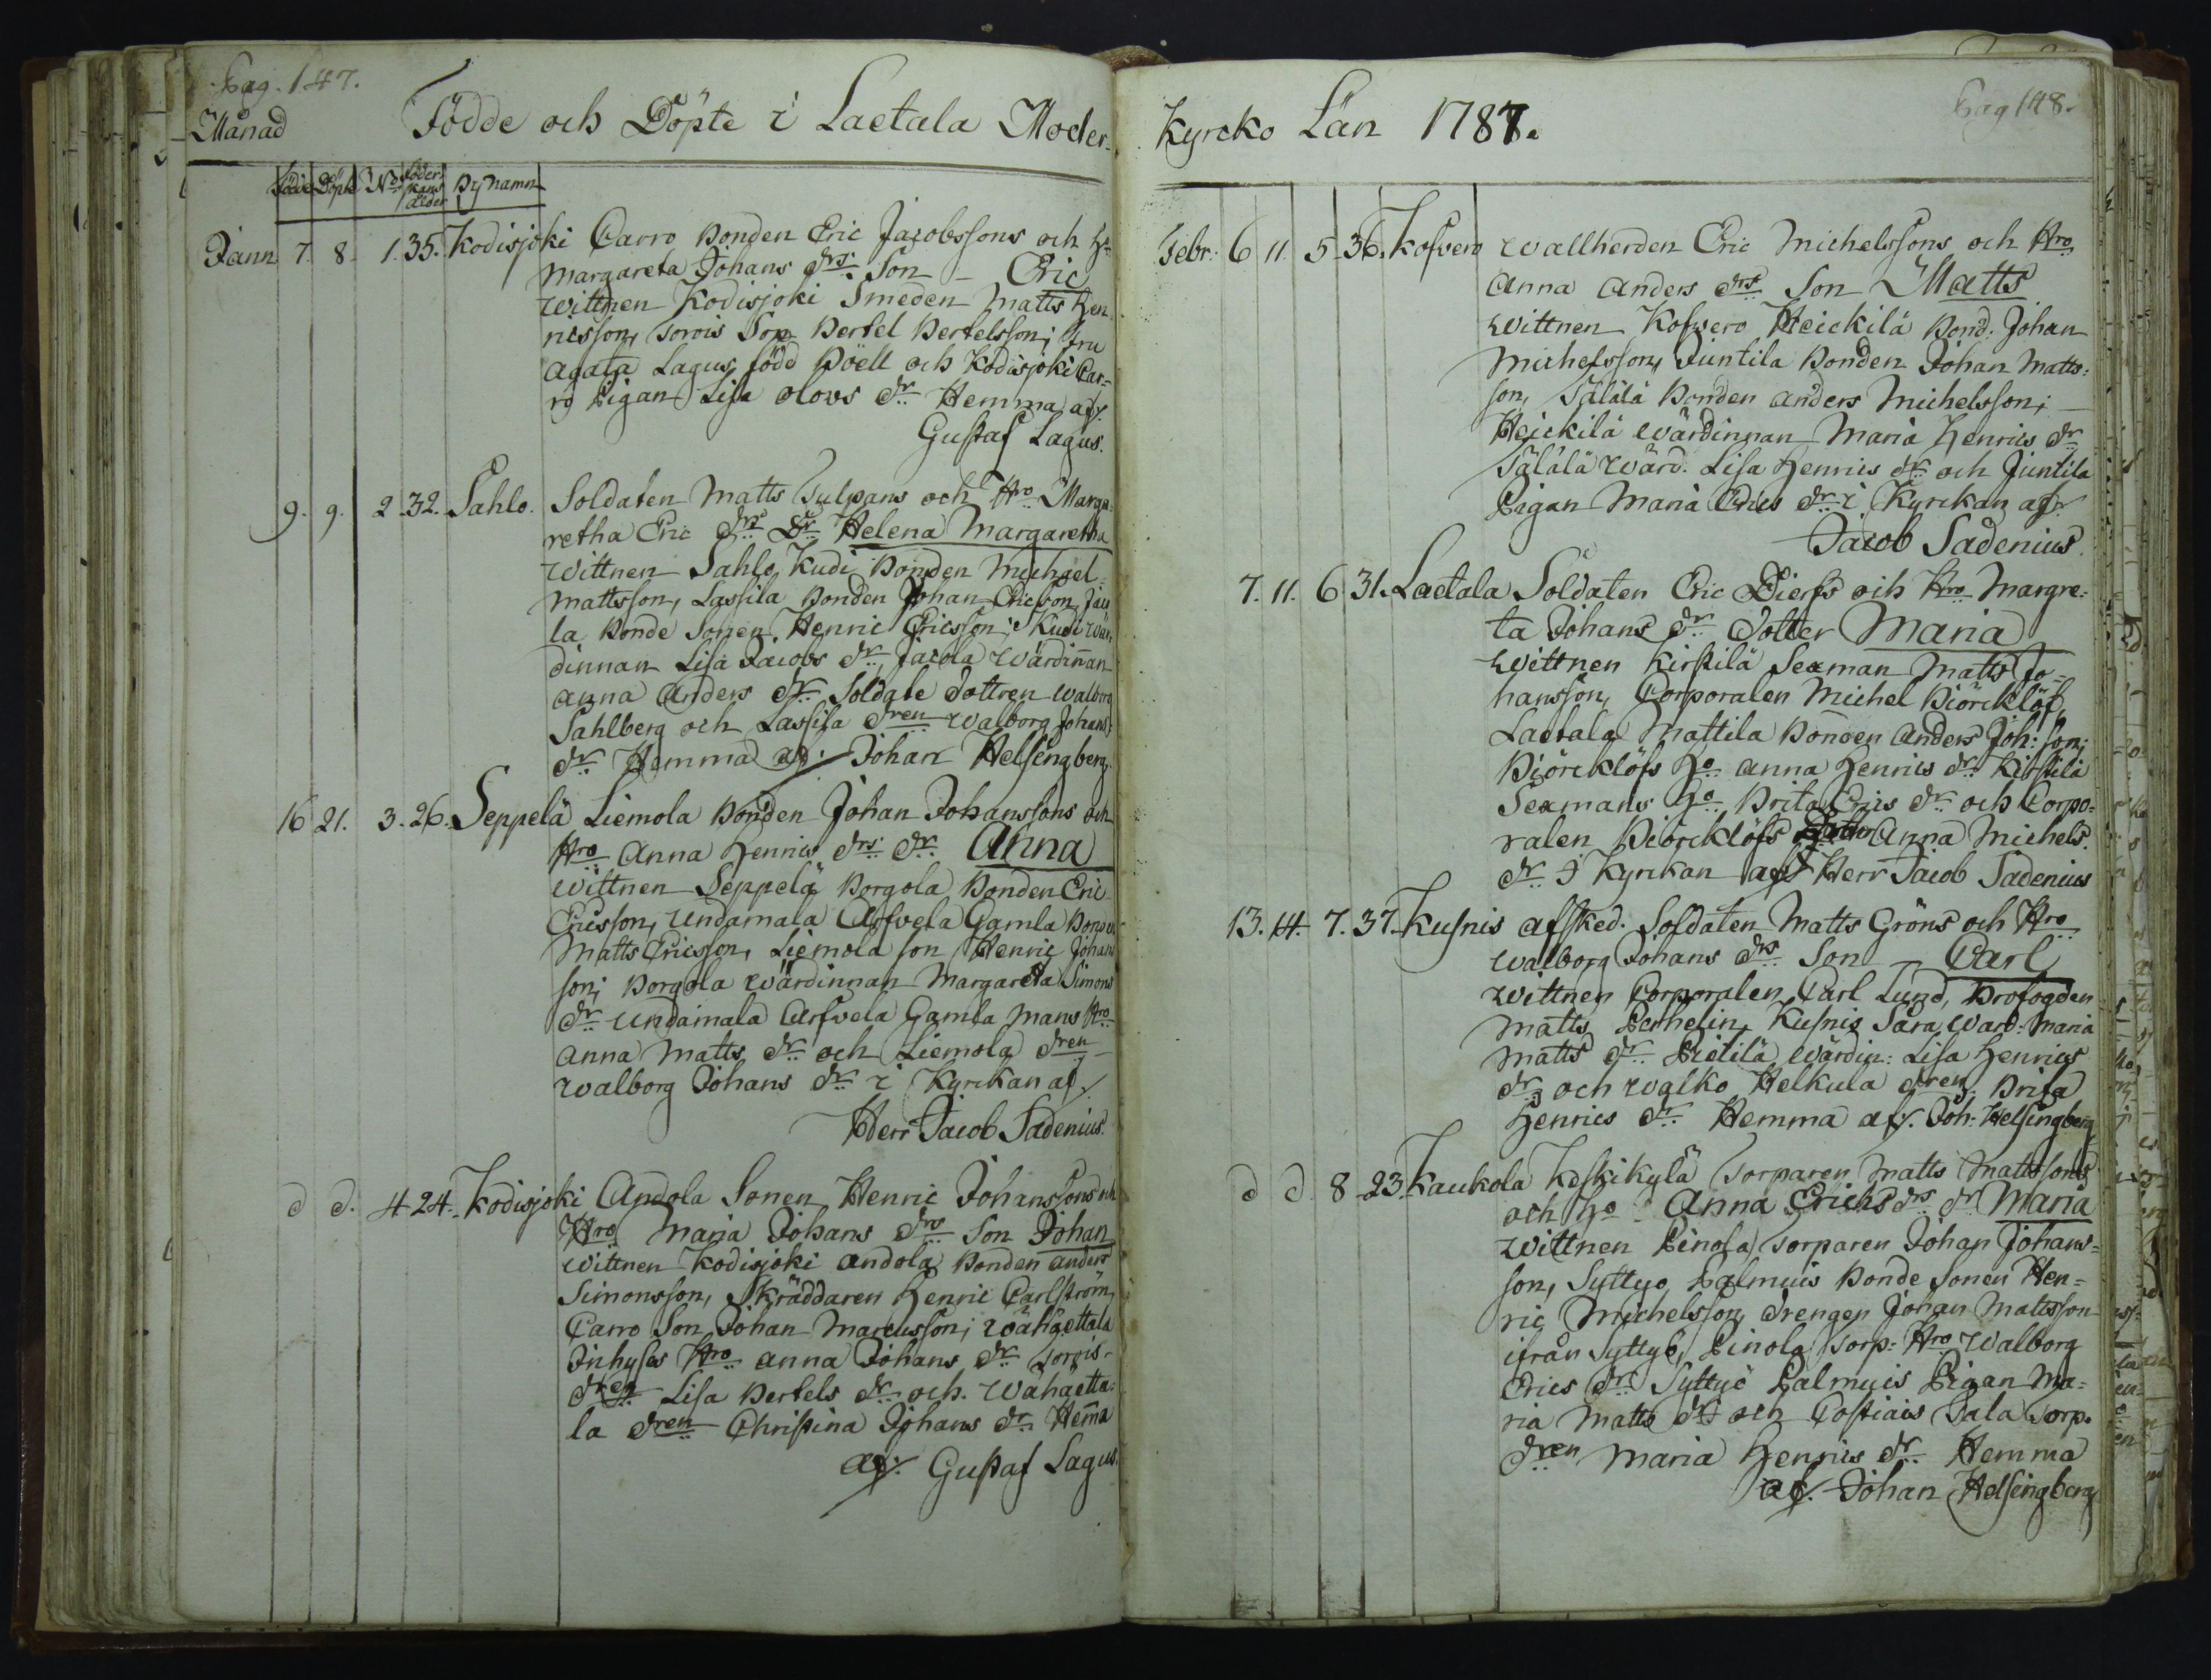 Pag. 147.
Månad Födde och Döpte i Laetala Moder-
Födde Döpte No. Föder-skans ålder By namn
Jann 7. 8. 1. 35. Kodisjoki Carro Bonden Eric Jacobssons och H:o
Margareta Johans drs: Son - Eric
Wittnen Kodisjoki Smeden Matts Hen-
ricsson, Sorois Son Bertel Bertelsson; fru
Agata Lagus född Poëll och Kodisjoki Car-
ro Pigan Lisa Olovs dr. Hemma af.
Gustaf Lagus.
9. 9. 2. 32. Sahlo. Soldaten Matts Tulpans och Hro Marga-
retha Eric drs Dr Helena Margaretha
Wittnen Sahlo Kudi Bonden Michael
Mattsson, Lassila Bonden Johan Ericson, Jaco
la Bonde Sonen Henric Ericsson; Kudi Wär-
dinnan Lisa Jacobs dr Jacola Wärdinnan
Anna Anders dr Soldate Dottren Walborg
Sahlberg och Lassila dren Walborg Johans
dr Hemma af. Johan Helsingberg.
16 21. 3. 26. Seppelä Liemola Bonden Johan Johanssons och
Hro Anna Henrics drs dr Anna
Wittnen Seppelä Borgola Bonden Eric
Ericsson, Undamala Arfvela Gamla Bonden
Matts Ericsson, Liemola son Henric Johans
son; Borgola Wärdinnan Margareta Simons
dr Undamala Arfvela Gamla Mans Hro
Anna Matts dr och Liemola dren
Walborg Johans dr i Kyrckan af
Herr Jacob Sadenius.
d d. 4. 24. Kodisjoki Andola Sonen Henric Johanssons och
Hro Maria Johans drs Son Johan
Wittnen Kodisjoki Andola Bonden Anders
Simonsson, Skräddaren Henric Carlström,
Carro Son Johan Marcusson; Wähäettala
Inhyses Hro Anna Johans dr Sorois-
dren Lisa Bertels dr och Wähäetta-
la dren Christina Johans dr Hem̄a
af. Gustaf Lagus.
Pag 148.
Kyrcko Län 1787.
Febr: 6 11. 5. 36. Kofvero Wallherden Eric Michelssons och Hro
Anna Anders drs Son Matts
Wittnen Kofvero Heickilä Bond. Johan
Michelsson, Juntila Bonden Johan Matts-
son, Sälälä Bonden Anders Michelsson;
Heickilä Wärdinnan Maria Henrics dr
Sälälä Wärd. Lisa Henrics dr och Juntila
Pigan Maria Erics dr i Kyrckan af
Jacob Sadenius.
7. 11. 6. 31. Laetala Soldaten Eric Dierfs och Hro Margre-
ta Johans dr Dotter Maria
Wittnen Kirstilä Sexman Matts Jo-
hansson, Corporalen Michel Biörcklöf,
Laetala Mattila Bonden Anders Joh: son;
Biörcklöfs H:o Anna Henrics dr Kirstilä
Sexmans H:o Brita Erics dr och Corpo-
ralen Biörcklöfs Dotter Anna Michels
dr i Kyrckan af Herr Jacob Sadenius
13. 14. 7. 37. Kusnis afsked. Soldaten Matts Gröns och Hro
Walborg Johans drs Son - Carl
Wittnen Corporalen Carl Lund, Profogden
Matts Pernelin, Kusnis Sara Ward: Maria
Matts dr Pietilä Wärdin: Lisa Henrics
dr; och Walko Helkula dren Brita
Henrics dr. Hemma af. Joh: Helsingberg.
d d. 8. 23. Kaukola Koskikylä Torparen Matts Mattssons
och H:o Anna Erichs drs dr Maria
Wittnen Pinola Torparen Johan Johans-
son, Syttyö Palmuis Bonde Sonen Hen-
ric Michelsson, Drengen Johan Mattsson
ifrån Syttyö, Pinola Torp: Hro Walborg
Erics dr Syttyö Palmuis Pigan Ma-
ria Matts dr och Costiais Tala Torp.
dren Maria Henrics dr Hemma
af. Johan Helsingberg